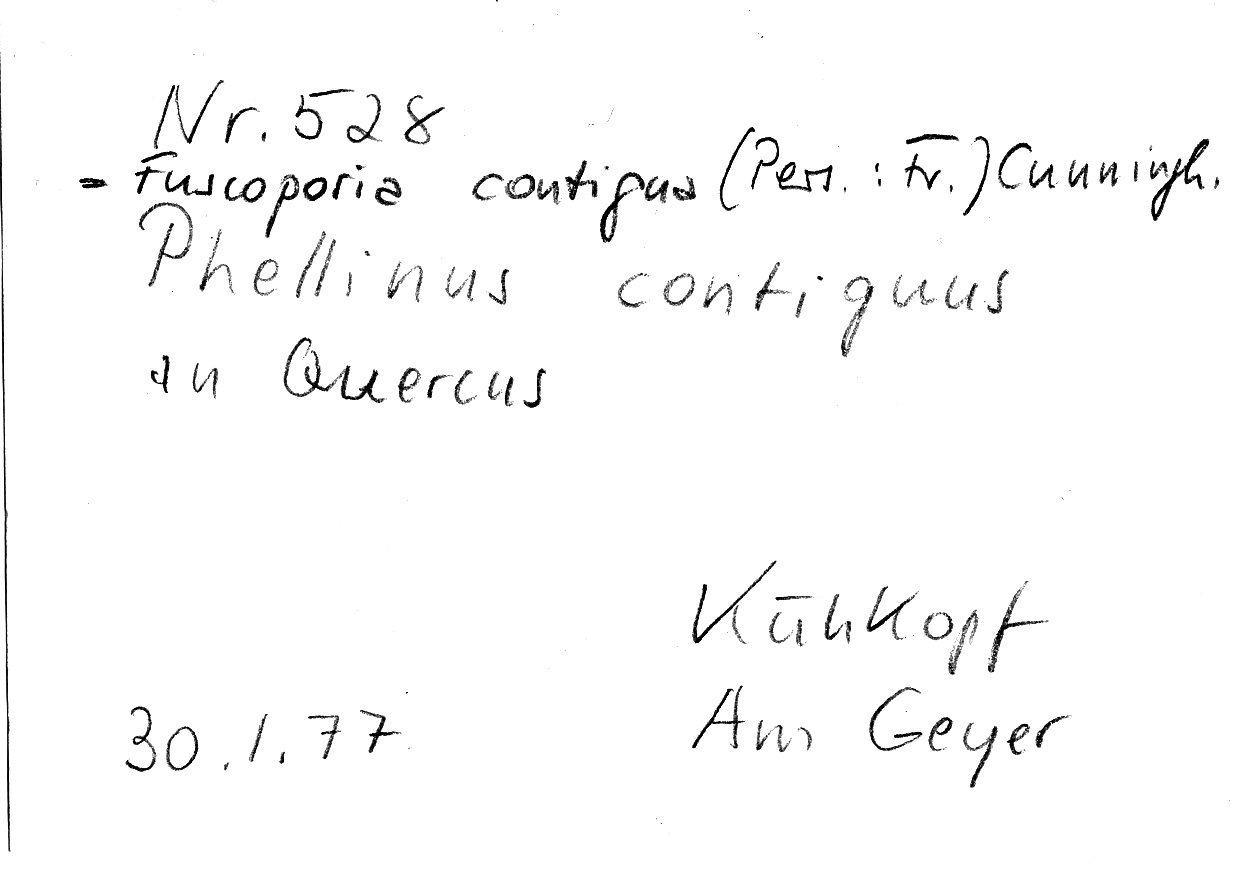 Nr. 528
= Fuscoporia contigua (Pers. : Fr.) Cunningh.
Phellinus contiguus
an Quercus
Kühkopf
Am Geyer
30.1.77